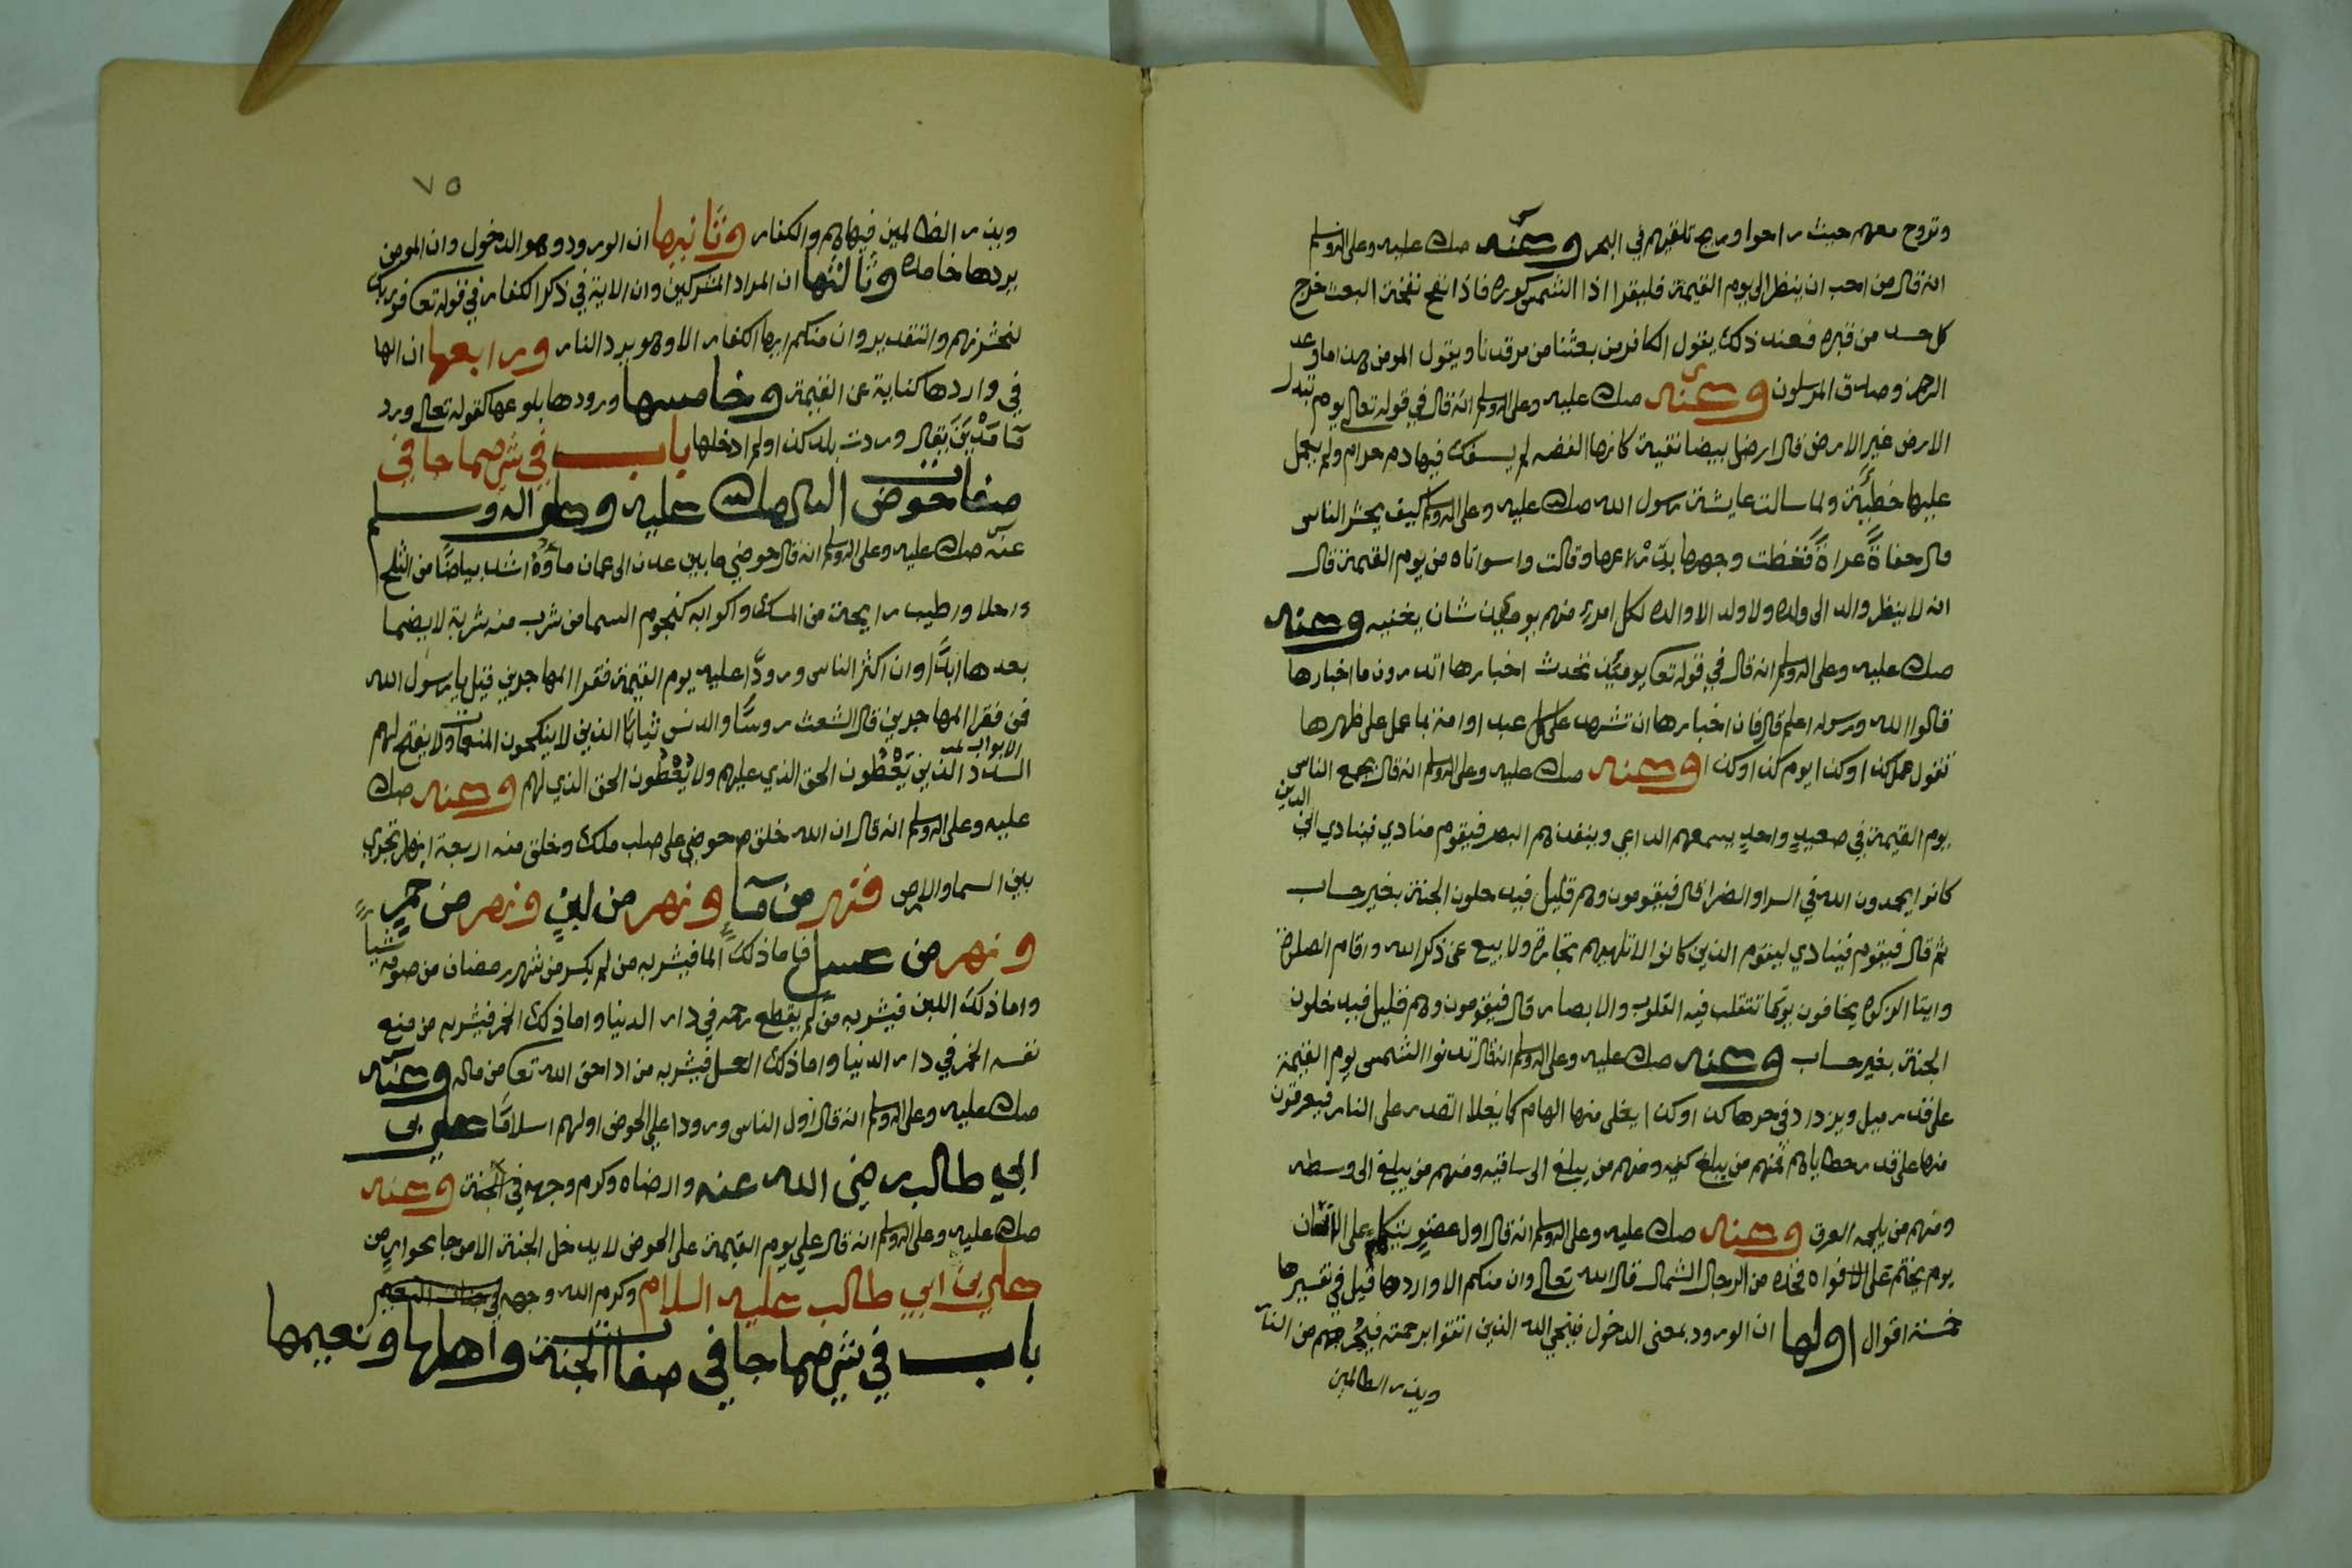 وتروح معهم حيث راحوا وريح تلقيهم في البحر وعنه صلى الله عليه وعلى اله وسلم
انه قال من احب ان ينظر الى يوم القيمة فليقرا اذا الشمس كورت فاذا نفخ نفخة البعث خرج
كل احد من قبره فعند ذلك يقول الكافر من بعثنا من مرقدنا ويقول المومن هذا ما وعد
الرحمن وصدق المرسلون وعنه صلى الله عليه وعلى اله وسلم انه قال في قوله تعالى يوم تبدل
الارض غير الارض قال ارض بيضا نقية كانها الفضه لم يسفك فيها دم حرام ولم يعمل
عليها خطيئة ولما سالت عايشة رسول الله صلى الله عليه وعلى اله وسلم كيف يحشر الناس
قال حفاةً عراةً فغطت وجهها وقالت واسواتاه من يوم القيمة قال
انه لا ينظر والد الى ولده ولا ولد الا والده لكل امرئ منهم يومئذ شان يغنيه وعنه
صلى الله عليه وعلى اله وسلم انه قال في قوله تعا يومئذ تحدث اخبارها اتدرون ما اخبارها
قالوا الله ورسوله اعلم قال فان اخبارها ان تشهد على كل عبد او امة بما عمل على ظهرها
تقول عمل كذا وكذا يوم كذا وكذا وعنه صلى الله عليه وعلى اله وسلم انه قال يجمع الناس
يوم القيمة في صعيدٍ واحدٍ يسمعهم الداعي وينفذهم البصر فيقوم منادي فينادي اين الذين
كانوا يحمدون الله في السرا والضرا قال فيقومون وهم قليل فيدخلون الجنة بغير حساب
ثم قال فيقوم فينادي ليقوم الذين كانوا لا تلهيهم تجارة ولا بيع عن ذكر الله واقام الصلوة
وايتا الزكوة يخافون يوما تتقلب فيه القلوب والابصار قال فيقومون وهم قليل فيدخلون
الجنة بغير حساب وعنه صلى الله عليه وعلى اله وسلم انه قال تدنوا الشمس يوم القيمة
على قدر ميل ويزداد في حرها كذا وكذا يغلى منها الهام كما يغلا القدر على النار فيعرقون
منها على قدر خطاياهم فمنهم من يبلغ كعبه ومنهم من يبلغ الى ساقيه ومنهم من يبلغ الى وسطه
ومنهم من يلجمه العرق وعنه صلى الله عليه وعلى اله وسلم انه قال اول عضو يتكلم على الانسان
يوم يختم على الافواه فخذه من الرجل الشمال قال الله تعالى وان منكم الا واردها قيل في تفسيرها
خمسة اقوال اولها ان الورود بمعنى الدخول فينجي الله الذين اتقوا برحمته فيخرجهم من النار
ويذر الظالمين
٧٥
ويذر الظالمين فيها وهم الكفار وثانيها ان الورود وهو الدخول وان المومن
يردها خامدة وثالثها ان المراد المشركين وان الاية في ذكر الكفار في قوله تعا فوربك
لنحشرنهم والتقدير وان منكم ايها الكفار الا وهو يرد النار ورابعها ان الها
في واردها كناية عن القيمة وخامسها ورودها بلوغها كقوله تعالى ورد
مآ مَدْيَنَ يقال وردت بلد كذا ولم ادخلها باب في شرح ما جا في
صفات حوض النبي صلى الله عليه وعلى اله وسلم
عنه صلى الله عليه وعلى اله وسلم انه قال حوضي ما بين عدن الى عمان مآؤه اشد بياضًا من الثلج
واحلا واطيب رايحة من المسك واكوابه كنجوم السما من شرب منه شربة لا يضما
بعدها ابدًا وان اكثر الناس ورودًا عليه يوم القيمة فقرا المهاجرين قيل يا رسول الله
فمن فقرا المهاجرين قال الشعث روسًا والدنس ثيابًا الذين لا ينكحون المنعمات ولا يفتح لهم
الابواب
السدد الذين يُعْطُون الحق الذي عليهم ولا يُعْطَون الحق الذي لهم وعنه صلى الله
عليه وعلى اله وسلم انه قال ان الله خلق حوضي على صلب ملك وخلق منه اربعة انهار تجري
بين السما والارض فنهر من مآ ونهر من لبنٍ ونهر من خمرٍ
ونهر من عسل فاما ذلك الما فيشربه من لم يكسر من شهر رمضان من صومه شيأً
واما ذلك اللبن فيشربه من لم يقطع رحمه في دار الدنيا واما ذلك الخمر فيشربه من منع
نفسه الخمر في دار الدنيا واما ذلك العسل فيشربه من ادا حق الله تعا من ماله وعنه
صلى الله عليه وعلى اله وسلم انه قال اول الناس ورودا علي الحوض اولهم اسلامًا علي بن
ابي طالب رضى الله عنه وارضاه وكرم وجهه في الجنة وعنه
صلى الله عليه وعلى اله وسلم انه قال علي يوم القيمة على الحوض لا يدخل الجنة الا من جا بجوازٍ من
علي بن ابي طالب عليه السلام وكرم الله وجهه في جنات النعيم
باب في شرح ما جا في صفات الجنة واهلها ونعيمها